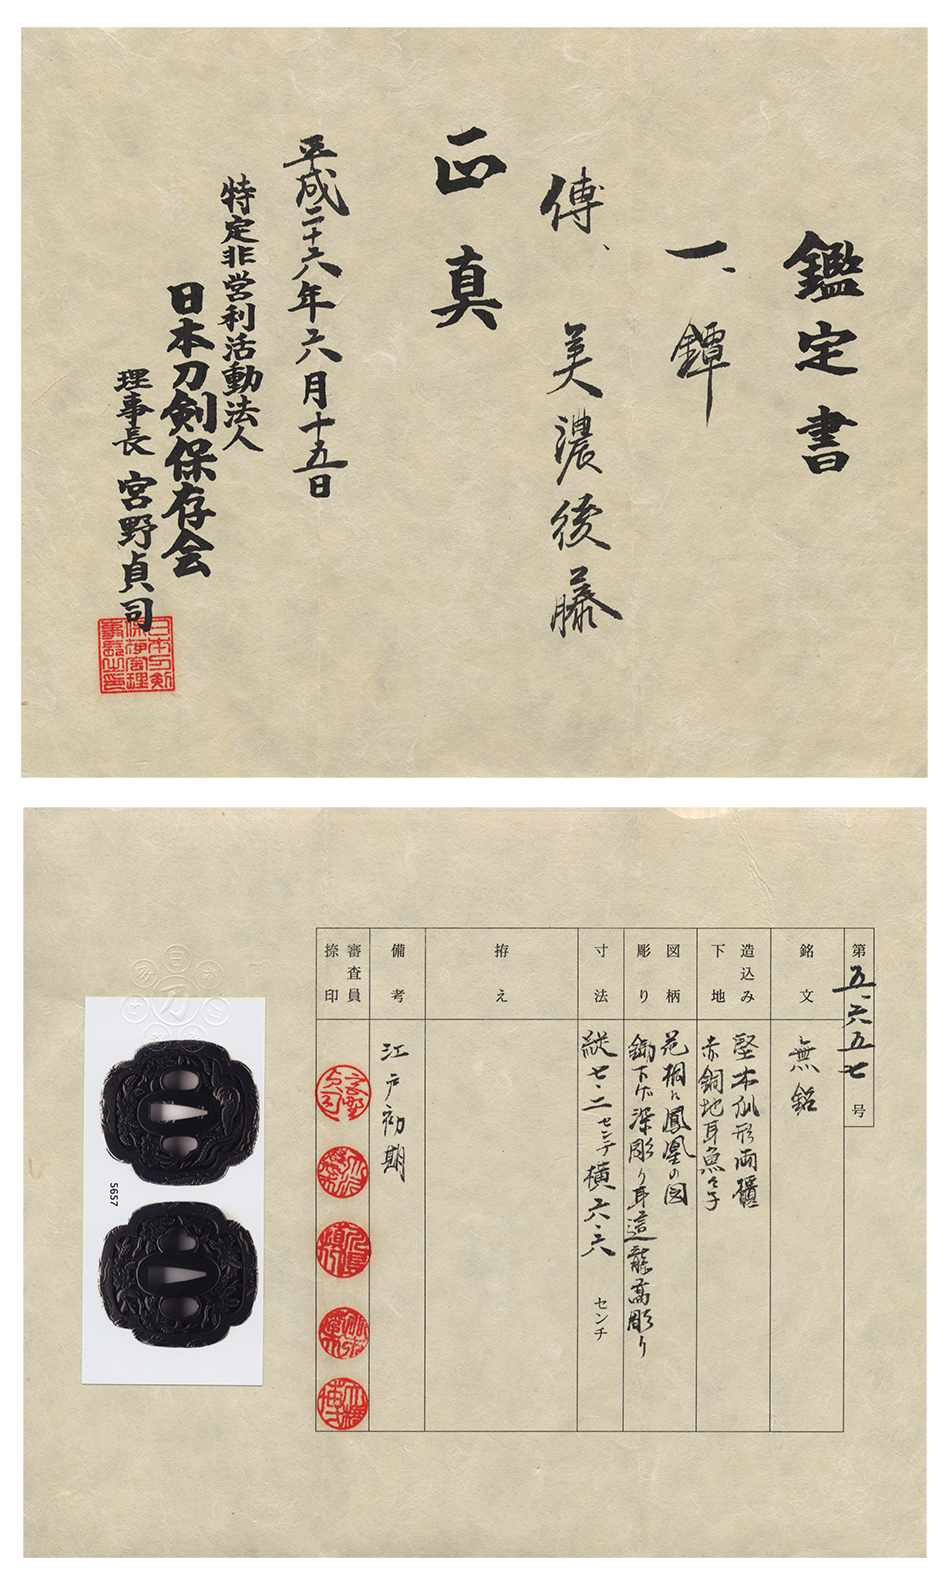 鑑定書
一、鐔
傳、美濃後藤
正真
平成二十六年六月十五日
特定非営利活動法人
日本刀剣保存会
理事長 宮野貞司
第五.六五七号
銘文
無銘
造込み
下地
竪木瓜形両櫃
赤銅地耳魚々子
図柄
彫り
花桐に鳳凰の図
鋤下げ深彫り耳這龍高彫り
寸法
縦七.二センチ横六.六センチ
拵え
備考
江戸初期
審査員
捺印
5657